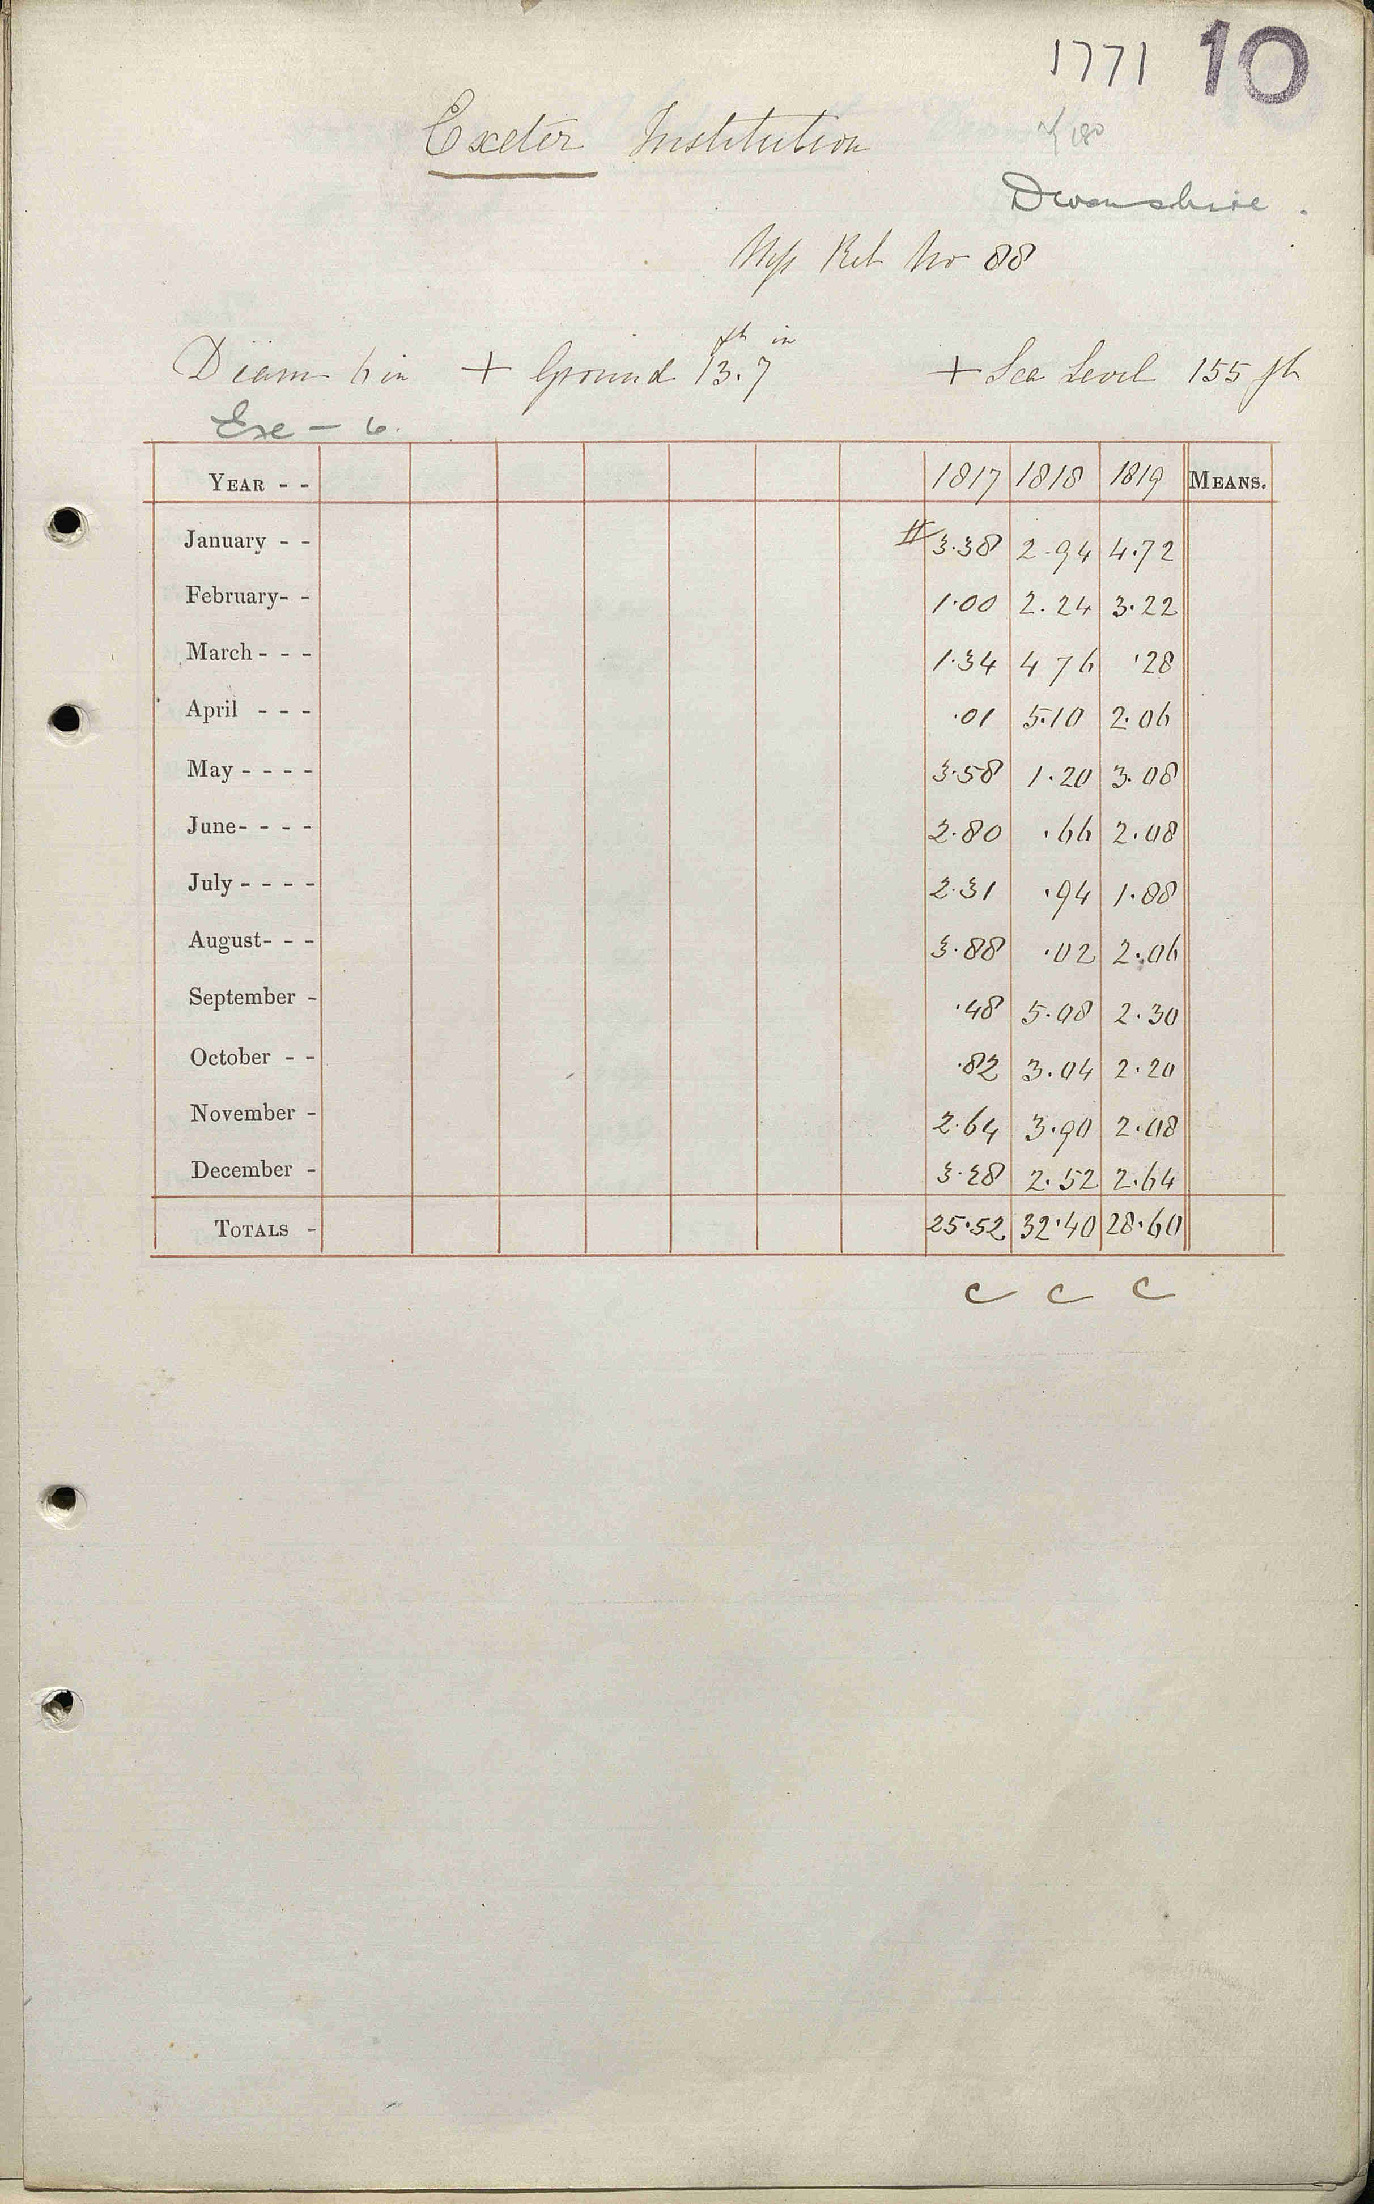 1771 10
Exeter Institution
Devonshire.
Mss Ret No 88
ft in
Diam 6 in + Ground 13.7 + Sea Level 155 ft
Exe - 6.
YEAR - - 1817 1818 1819 MEANS.
January - - # 3.38 2.94 4.72
February- - 1.00 2.24 3.22
March - - - 1.34 4 76 .28
April - - - .01 5.10 2.06
May - - - - 3.58 1.20 3.08
June- - - - 2.80 .66 2.08
July - - - - 2.31 .94 1.88
August- - - 3.88 .02 2.06
September - .48 5.08 2.30
October - - .82 3.04 2.20
November - 2.64 3.90 2.08
December - 3.28 2.52 2.64
TOTALS - 25.52 32.40 28.60
C C C